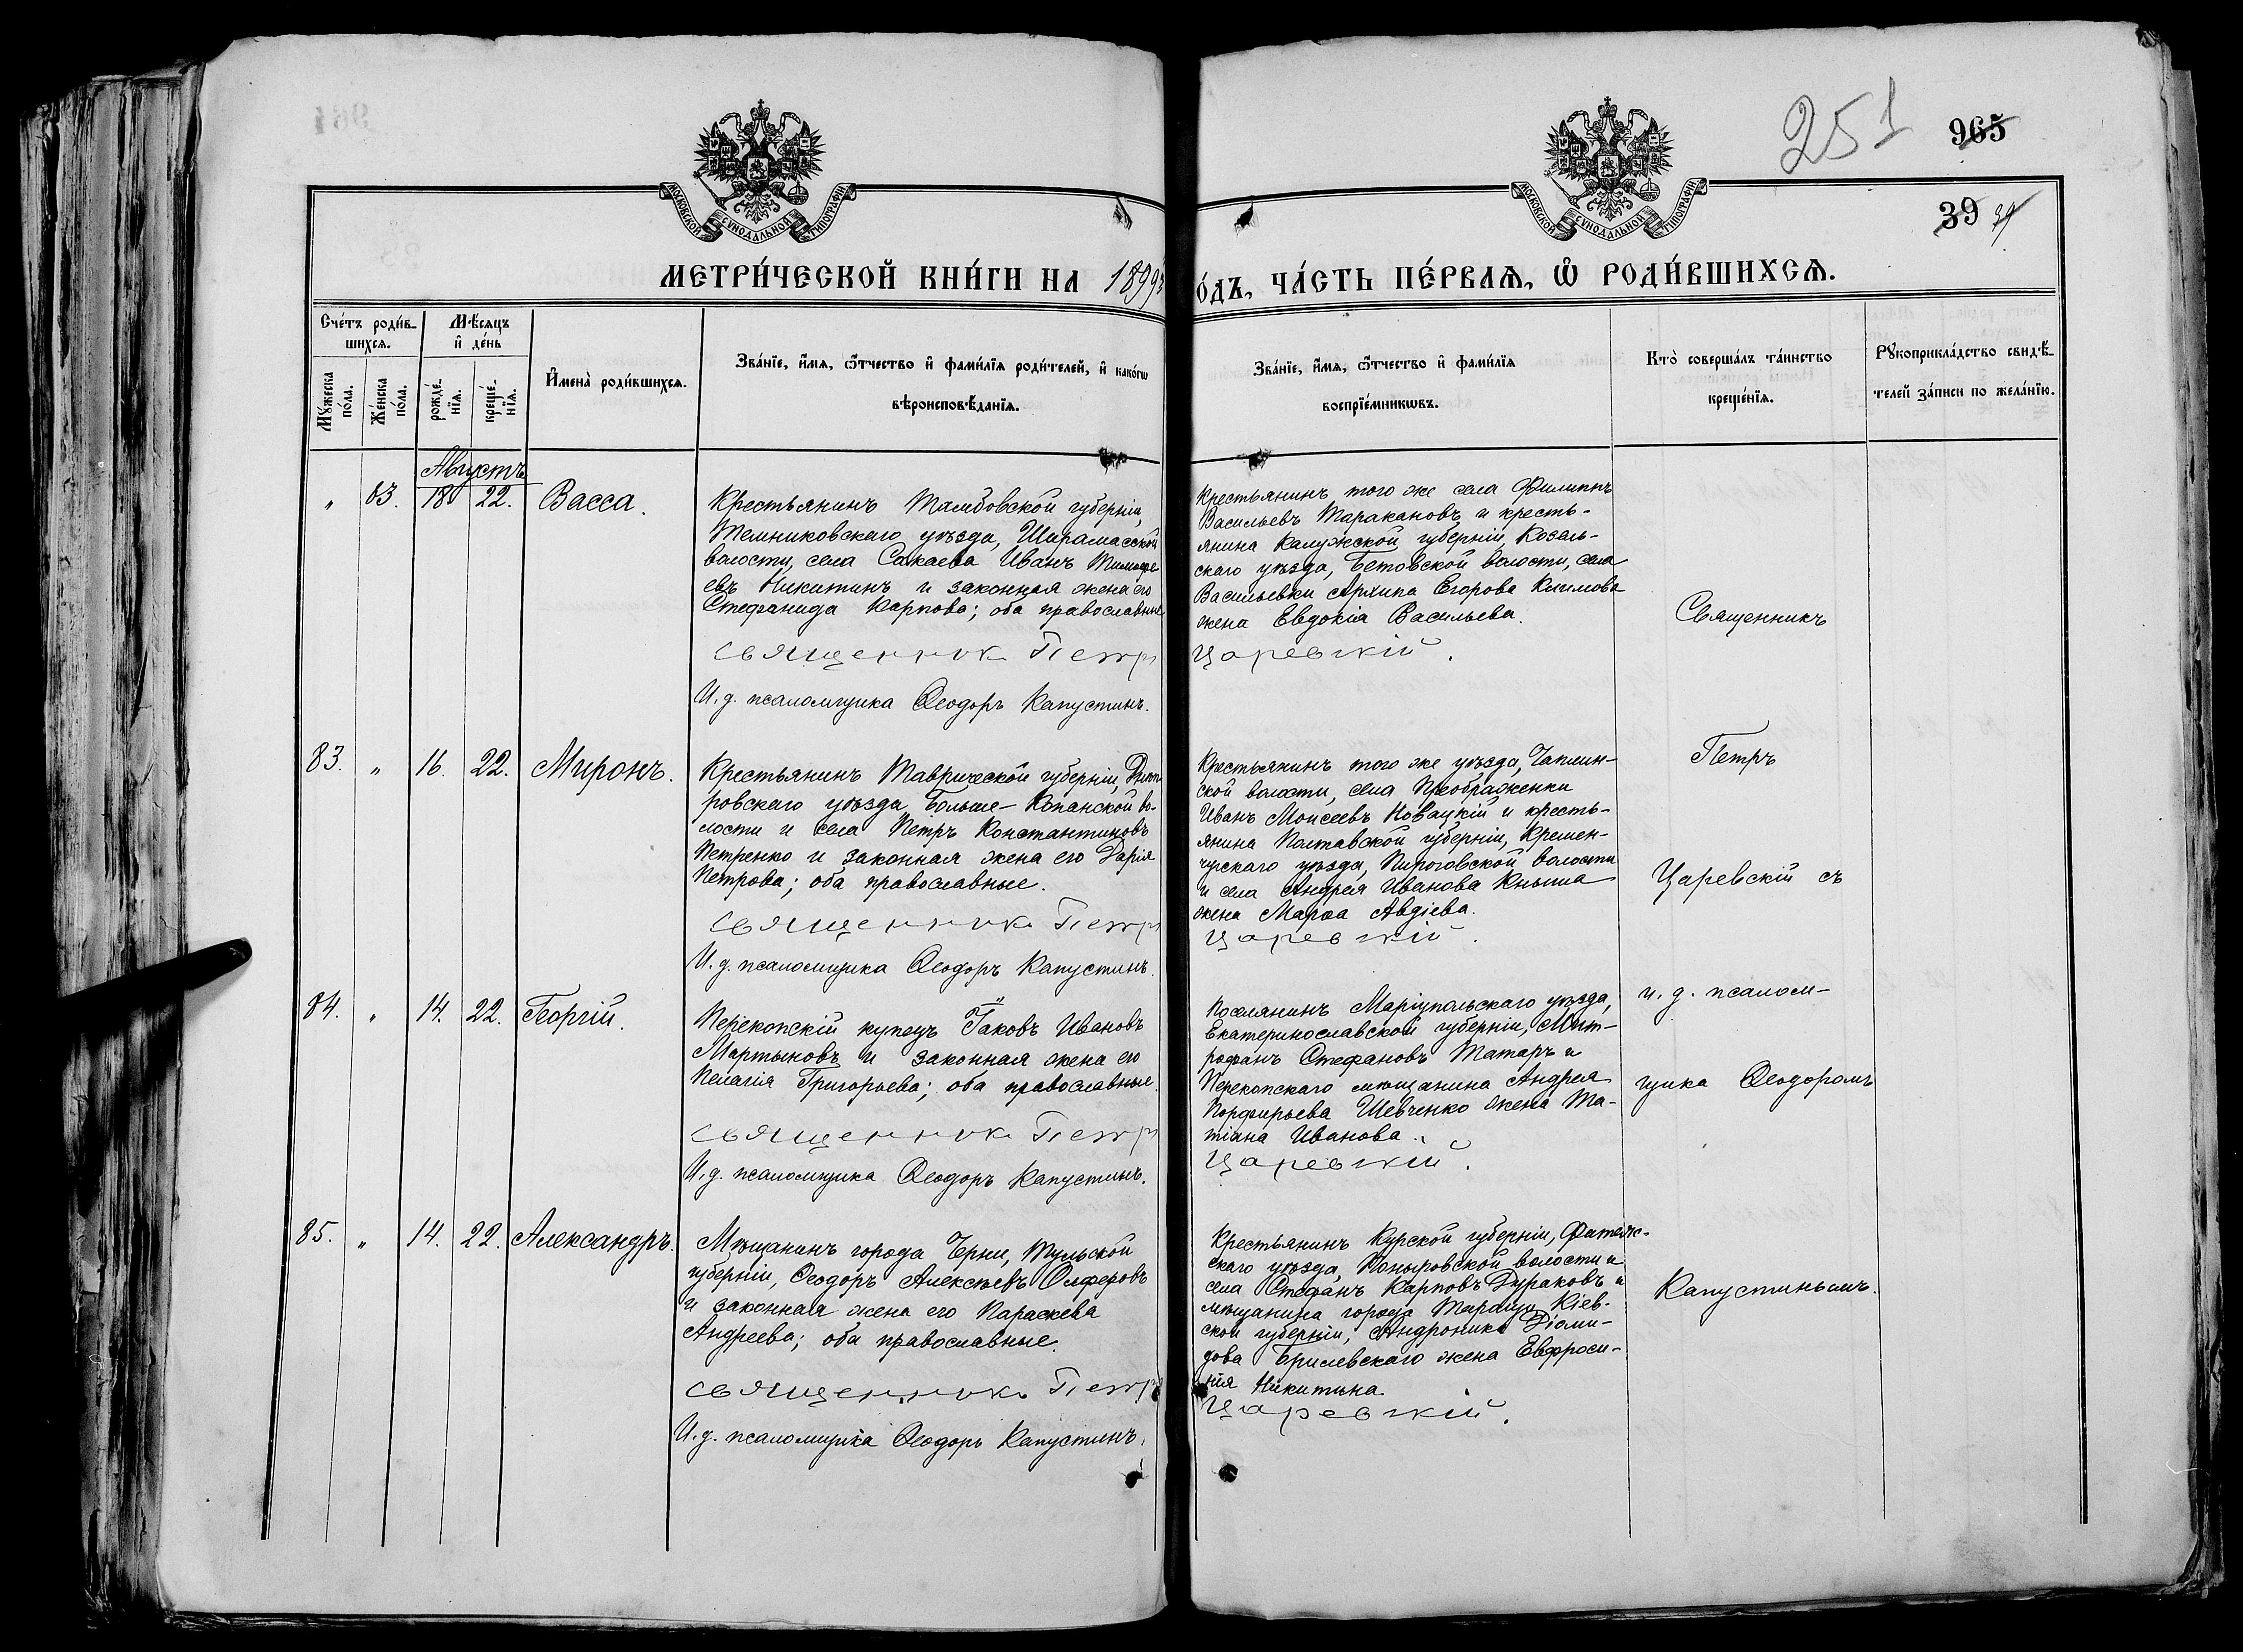 251
965
39 39
МОСКОВСКОЙ СѴНОДАЛЬНОЙ ТИПОГРАФІИ
МОСКОВСКОЙ СѴНОДАЛЬНОЙ ТИПОГРАФІИ
МЕТРИ́ЧЕСКОЙ КНИ́ГИ НА 1899 
О́ДЪ, ЧА́СТЬ ПЕ́РВАѦ, Ѡ҆ РОДИ́ВШИХСѦ.
Сче́тъ роди́в-
шихсѧ.
Мꙋ́жеска по́ла.
Же́нска по́ла.
Мѣ́сѧцъ
и҆ де́нь
рожде́-
нїѧ.
креще́-
нїѧ.
И҆мена̀ роди́вшихсѧ.
Зва́нїе, и҆́мѧ, ѻ҆́тчество и҆ фами́лїѧ роди́телей, и҆ како́гѡ
вѣроисповѣ́данїѧ.
Зва́нїе, и҆́мѧ, ѻ҆́тчество и҆ фами́лїѧ
воспрїе́мникѡвъ.
Кто̀ соверша́лъ та́инство
креще́нїѧ.
Рꙋкоприкла́дство свидѣ́-
телей за́писи по жела́нїю.
Августъ
" 83. 18 22. Васса.
Крестьянинъ Тамбовской губерніи,
Темниковскаго уѣзда, Ширамасской
волости, села Сакаева Иванъ Тимофе
евъ Никитинъ и законная жена его
Стефанида Карпова; оба православные
Священникъ Петръ
И. д. псаломщика Ѳеодоръ Капустинъ.
Крестьянинъ того же села Филиппъ
Васильевъ Таракановъ и кресть-
янина Калужской губерніи, Козель-
скаго уѣзда, Бетовской волости, села
Васильевки Архипа Егорова Климова
жена Евдокія Васильева.
Царевскій.
Священникъ
83. " 16. 22. Миронъ.
Крестьянинъ Таврической губерніи, Днѣп
ровскаго уѣзда, Больше-Копанской во-
лости и села Петръ Константиновъ
Петренко и законная жена его Дарія
Петрова; оба православные.
Священникъ Петръ
И. д. псаломщика Ѳеодоръ Капустинъ.
Крестьянинъ того же уѣзда, Чаплин-
ской волости, села Преображенки
Иванъ Моисеевъ Новацкій и кресть-
янина Полтавской губерніи, Кремен-
чугскаго уѣзда, Пироговской волости
и села Андрея Иванова Кныша
жена Марѳа Авдіева.
Царевскій.
Петръ
Царевскій съ
84. " 14. 22. Георгій.
Перекопскій купецъ Іаковъ Ивановъ
Мартыновъ и законная жена его
Пелагія Григорьева; оба православные.
Священникъ Петръ
И. д. псаломщика Ѳеодоръ Капустинъ.
Поселянинъ Маріупольскаго уѣзда,
Екатеринославской губерніи, Мит-
рофанъ Стефановъ Татаръ и
Перекопскаго мѣщанина Андрея
Порфирьева Шевченко жена Та-
тіана Иванова.
Царевскій.
и. д. псалом-
щика Ѳеодоромъ
85. " 14. 22. Александръ.
Мѣщанинъ города Черни, Тульской
губерніи, Ѳеодоръ Алексѣевъ Олферовъ
и законная жена его Параскева
Андреева; оба православные.
Священникъ Петръ
И. д. псаломщика Ѳеодоръ Капустинъ.
Крестьянинъ Курской губерніи, Фатеж-
скаго уѣзда, Поныровской волости и
села Стефанъ Карповъ Дураковъ и
мѣщанина города Таращи, Кіев-
ской губерніи, Андроника Діоми-
дова Брилевскаго жена Евфроси-
нія Никитина.
Царевскій.
Капустинымъ.